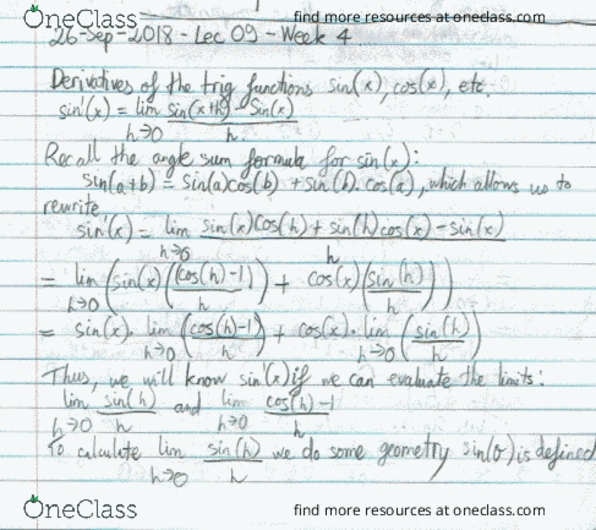 OneClass find more resources at oneclass.com
26-Sep-2018 - Lec 09 - Week 4
Derivatives of the trig functions sin(x), cos(x), etc.
sin'(x) = lim h→0 (sin(x+h) - Sin(x))/h
Recall the angle sum formula for sin(x):
sin(a+b) = sin(a)cos(b) + sin(b)·cos(a), which allows us to
rewrite
sin'(x) = lim h→0 (sin(x)cos(h) + sin(h)cos(x) - sin(x))/h
= lim h→0 (sin(x)((cos(h)-1)/h) + cos(x)(sin(h)/h))
= sin(x)· lim h→0 ((cos(h)-1)/h) + cos(x)· lim h→0 (sin(h)/h)
Thus, we will know sin'(x) if we can evaluate the limits:
lim h→0 sin(h)/h and lim h→0 (cos(h)-1)/h
To calculate lim h→0 sin(h)/h we do some geometry sin(θ) is defined
OneClass find more resources at oneclass.com